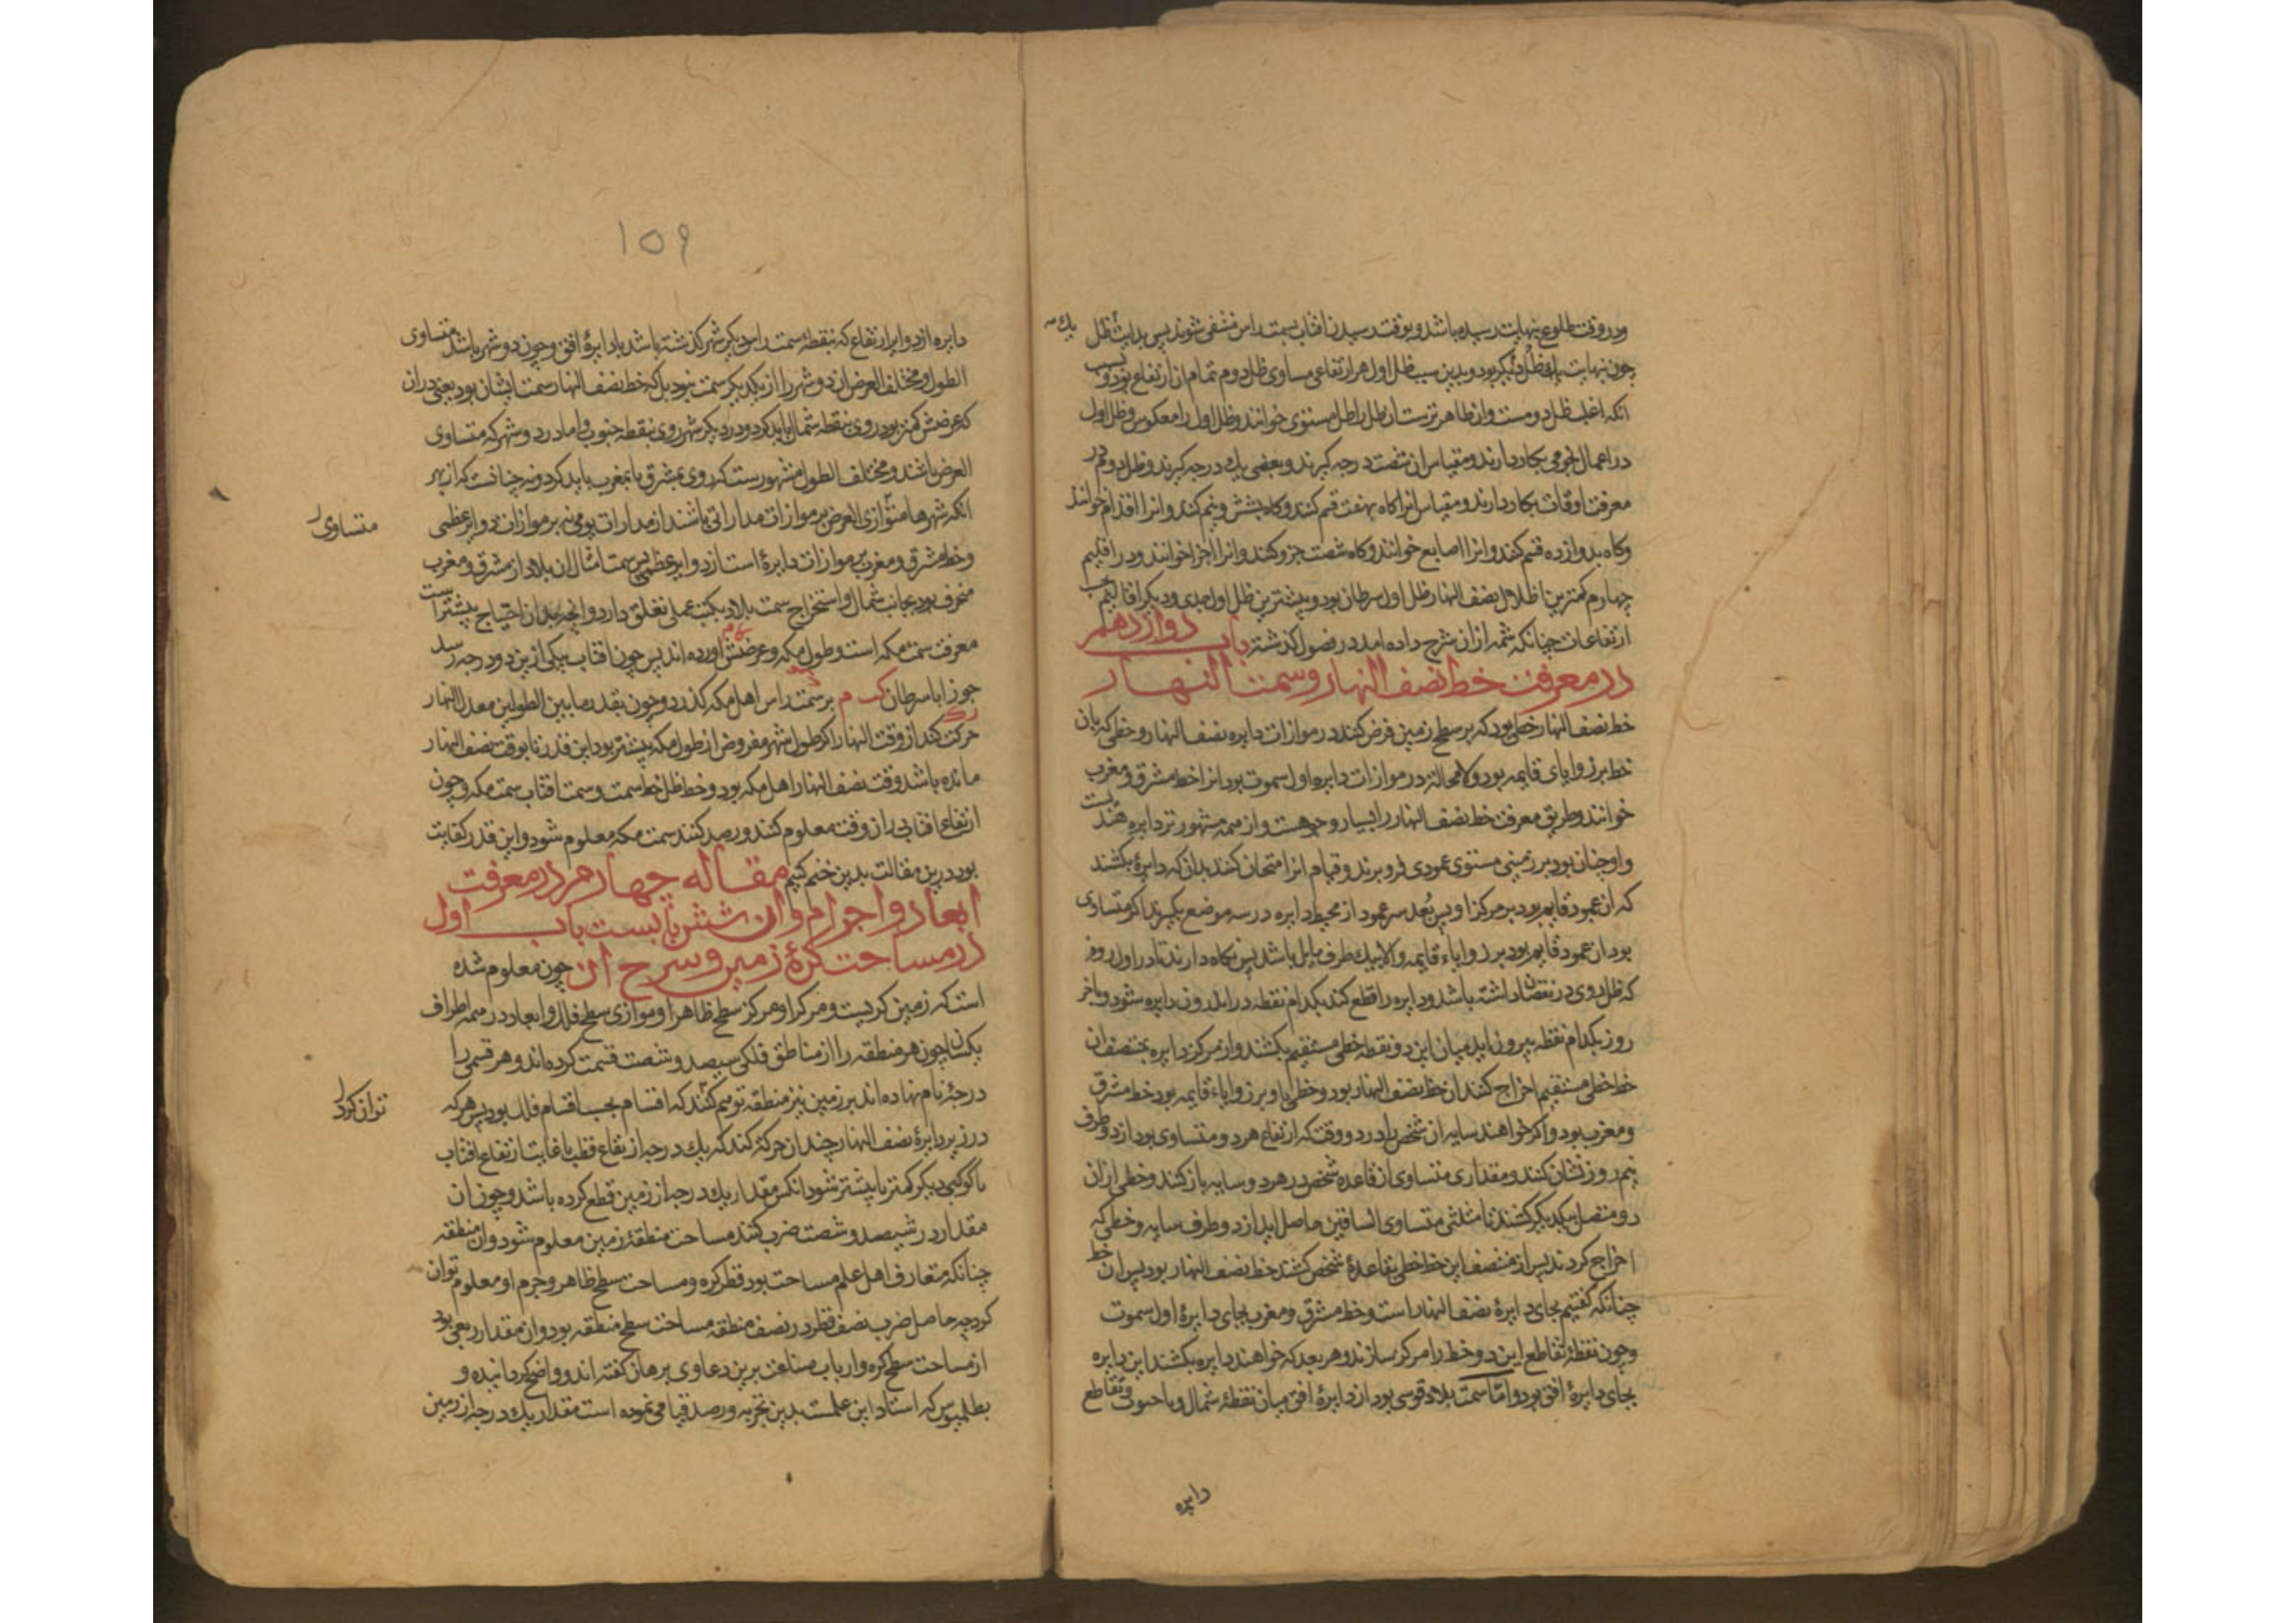 ودر وقت طلوع بنهایت رسیده باشد و بوقت رسیدن افتاب بسمت راس منتفی شوند پس بدایت ظل یک
چون نهایت یک ظل دیگر بود و بدین سبب ظل اول هر ارتفاعی مساوی ظل دوم تمام ان ارتفاع بود و
انکه اغلب ظل دومست وان ظاهر ترست ان ظل را ظل مستوی خوانند و ظل اول را معکوس و ظل اول
در اعمال نجومی بکار دارند و مقیاس ان شصت درجه کیرند و بعضی یک درجه کیرند و ظل دوم در
معرفت اوقات بکار دارند و مقیاس انرا کاه بهفت قسم کنند و کاه بشش و نیم کنند و انرا اقدام خوانند
وکاه بدوازده قسم کنند و انرا اصابع خوانند و کاه شصت جزو کنند و انرا اجزا خوانند ودر اقلیم
چهارم کمترین اظلال نصف النهار ظل اول سرطان بود و بیشترین ظل اول جدی و دیکر اقالیم
ارتفاعات چنانکه شمه ازان شرح داده امد در فصول کذشته باب دوازدهم
در معرفت خط نصف النهار وسمت النهار
خط نصف النهار خطی بود که بر سطح زمین فرض کنند در موازات دایره نصف النهار و خطی که بان
خط بر زوایای قایمه بود و لامحاله در موازات دایره اول سموت بود انرا خط مشرق و مغرب
خوانند و طریق معرفت خط نصف النهار را بسیار وجوهست و از همه مشهور تر دایره هندیست
واو چنان بود بر زمینی مستوی عمودی فرو برند و قیام انرا امتحان کنند بدان که دایرۀ بکشند
که از عمود قایم بود بر مرکز او پس بعد سر عمود از محیط دایره در سه موضع بکیرند اکر متساوی
بود ان عمود قایم بود بر زوایاء قایمه والا بیک طرف مایل باشد پس نکاه دارند تا در اول روز
که ظل روی در نقصان داشته باشد ودایره را قطع کند بکدام نقطه در اندرون دایره شود و باخر
روز بکدام نقطه بیرون اید میان این دو نقطه خطی مستقیم بکشند و از مرکز دایره بمنتصف ان
خط خطی مستقیم اخراج کنند ان خط نصف النهار بود و خطی باو بر زوایاء قایمه بود خط مشرق
ومغرب بود و اکر خواهند سایه ان شخص را در دو وقت که ارتفاع هر دو متساوی بود از دو طرف
نیم روز نشان کنند و مقداری متساوی از قاعده شخص در هر دو سایه باز کنند و خطی ازان
دو متصل بیکدیکر کشند تا مثلثی متساوی الساقین حاصل اید از دو طرف سایه و خطی که
اخراج کردند پس از منتصف این خط خطی بقاعدۀ شخص کشند خط نصف النهار بود پس ان خط
چنانکه کفتیم بجای دایرۀ نصف النهار است و خط مشرق و مغرب بجای دایرۀ اول سموت
وچون نقطۀ تقاطع این دو خط را مرکز سازند و هر بعد که خواهند دایره بکشند این دایره
بجای دایرۀ افق بود و اما سمت بلاد قوسی بود از دایرۀ افق میان نقطۀ شمال و یا جنوب و تقاطع
دایره
١٥٩
دایره از دوایر ارتفاع که بنقطۀ سمت راس دیکر شهر کذشته باشد با دایرۀ افق و چون دو شهر باشد متساوی
الطول و مختلف العرض ان دو شهر را از یکدیکر سمت نبود بل که خط نصف النهار سمت ایشان بود یعنی دران
که عرضش کمتر بود روی بنقطه شمال باید کرد و در دیکر شهر روی بنقطه جنوب و اما در دو شهر که متساوی
العرض باشند و مختلف الطول مشهورست که روی بمشرق یا بمغرب باید کرد و نه چنانست که از بهر
انکه شهرها متوازی العرض بر موازات مداراتی باشند از مدارات یومی نه بر موازات دوایر عظمی
متساوی
وخط مشرق و مغرب بر موازات دایرۀ است از دوایر عظمی پس سمت امثال ان بلاد از مشرق و مغرب
منحرف بود بجانب شمال و استخراج سمت بلاد بکتب عملی تعلق دارد و انچه بدان احتیاج بیشتر است
معرفت سمت مکه است و طول مکه و عرضش اورده اند پس چون افتاب بیکی ازین دو درجه رسد
جوزا یا سرطان بر سمت راس اهل مکه کذرد و چون بقدر ما بین الطولین معدل النهار
حرکت کند از وقت النهار اکر طول شهر مفروض از طول مکه بیشتر بود این قدر تا بوقت نصف النهار
مانده باشد وقت نصف النهار اهل مکه بود و خط ظل خط سمت و سمت افتاب سمت مکه و چون
ارتفاع افتاب دران وقت معلوم کنند و رصد کنند سمت مکه معلوم شود و این قدر کفایت
بود درین مقالت بدین ختم کنیم مقاله چهارم در معرفت
ابعاد و اجرام وان شش بابست باب اول
در مساحت کرۀ زمین و شرح ان چون معلوم شده
است که زمین کریست و مرکز او مرکز سطح ظاهر او موازی سطح فلک و ابعاد در همه اطراف
یکسان چون هر منطقه را از مناطق فلکی سیصد و شصت قسمت کرده اند و هر قسمی را
درجۀ نام نهاده اند بر زمین نیز منطقه توهم کنند که اقسام بحسب اقسام فلک بود پس هر که
توان کرد
در زیر دایرۀ نصف النهار چندان حرکة کند که یک درجه ارتفاع قطب یا غایت ارتفاع افتاب
یا کوکبی دیکر کمتر یا بیشتر شود انکس مقدار یک درجه از زمین قطع کرده باشد و چون ان
مقدار در سیصد و شصت ضرب کنند مساحت منطقۀ زمین معلوم شود وان منطقه
چنانکه متعارف اهل علم مساحت بود قطر کره و مساحت سطح ظاهر و جرم او معلوم توان
کرد چه حاصل ضرب نصف قطر در نصف منطقه مساحت سطح منطقه بود وان مقدار ربعی بود
از مساحت سطح کره و ارباب صناعت برین دعاوی برهان کفته اند و واضح کردانیده و
بطلمیوس که استاد این علمست بدین تجربه و رصد قیامی نموده است مقدار یک درجه از زمین